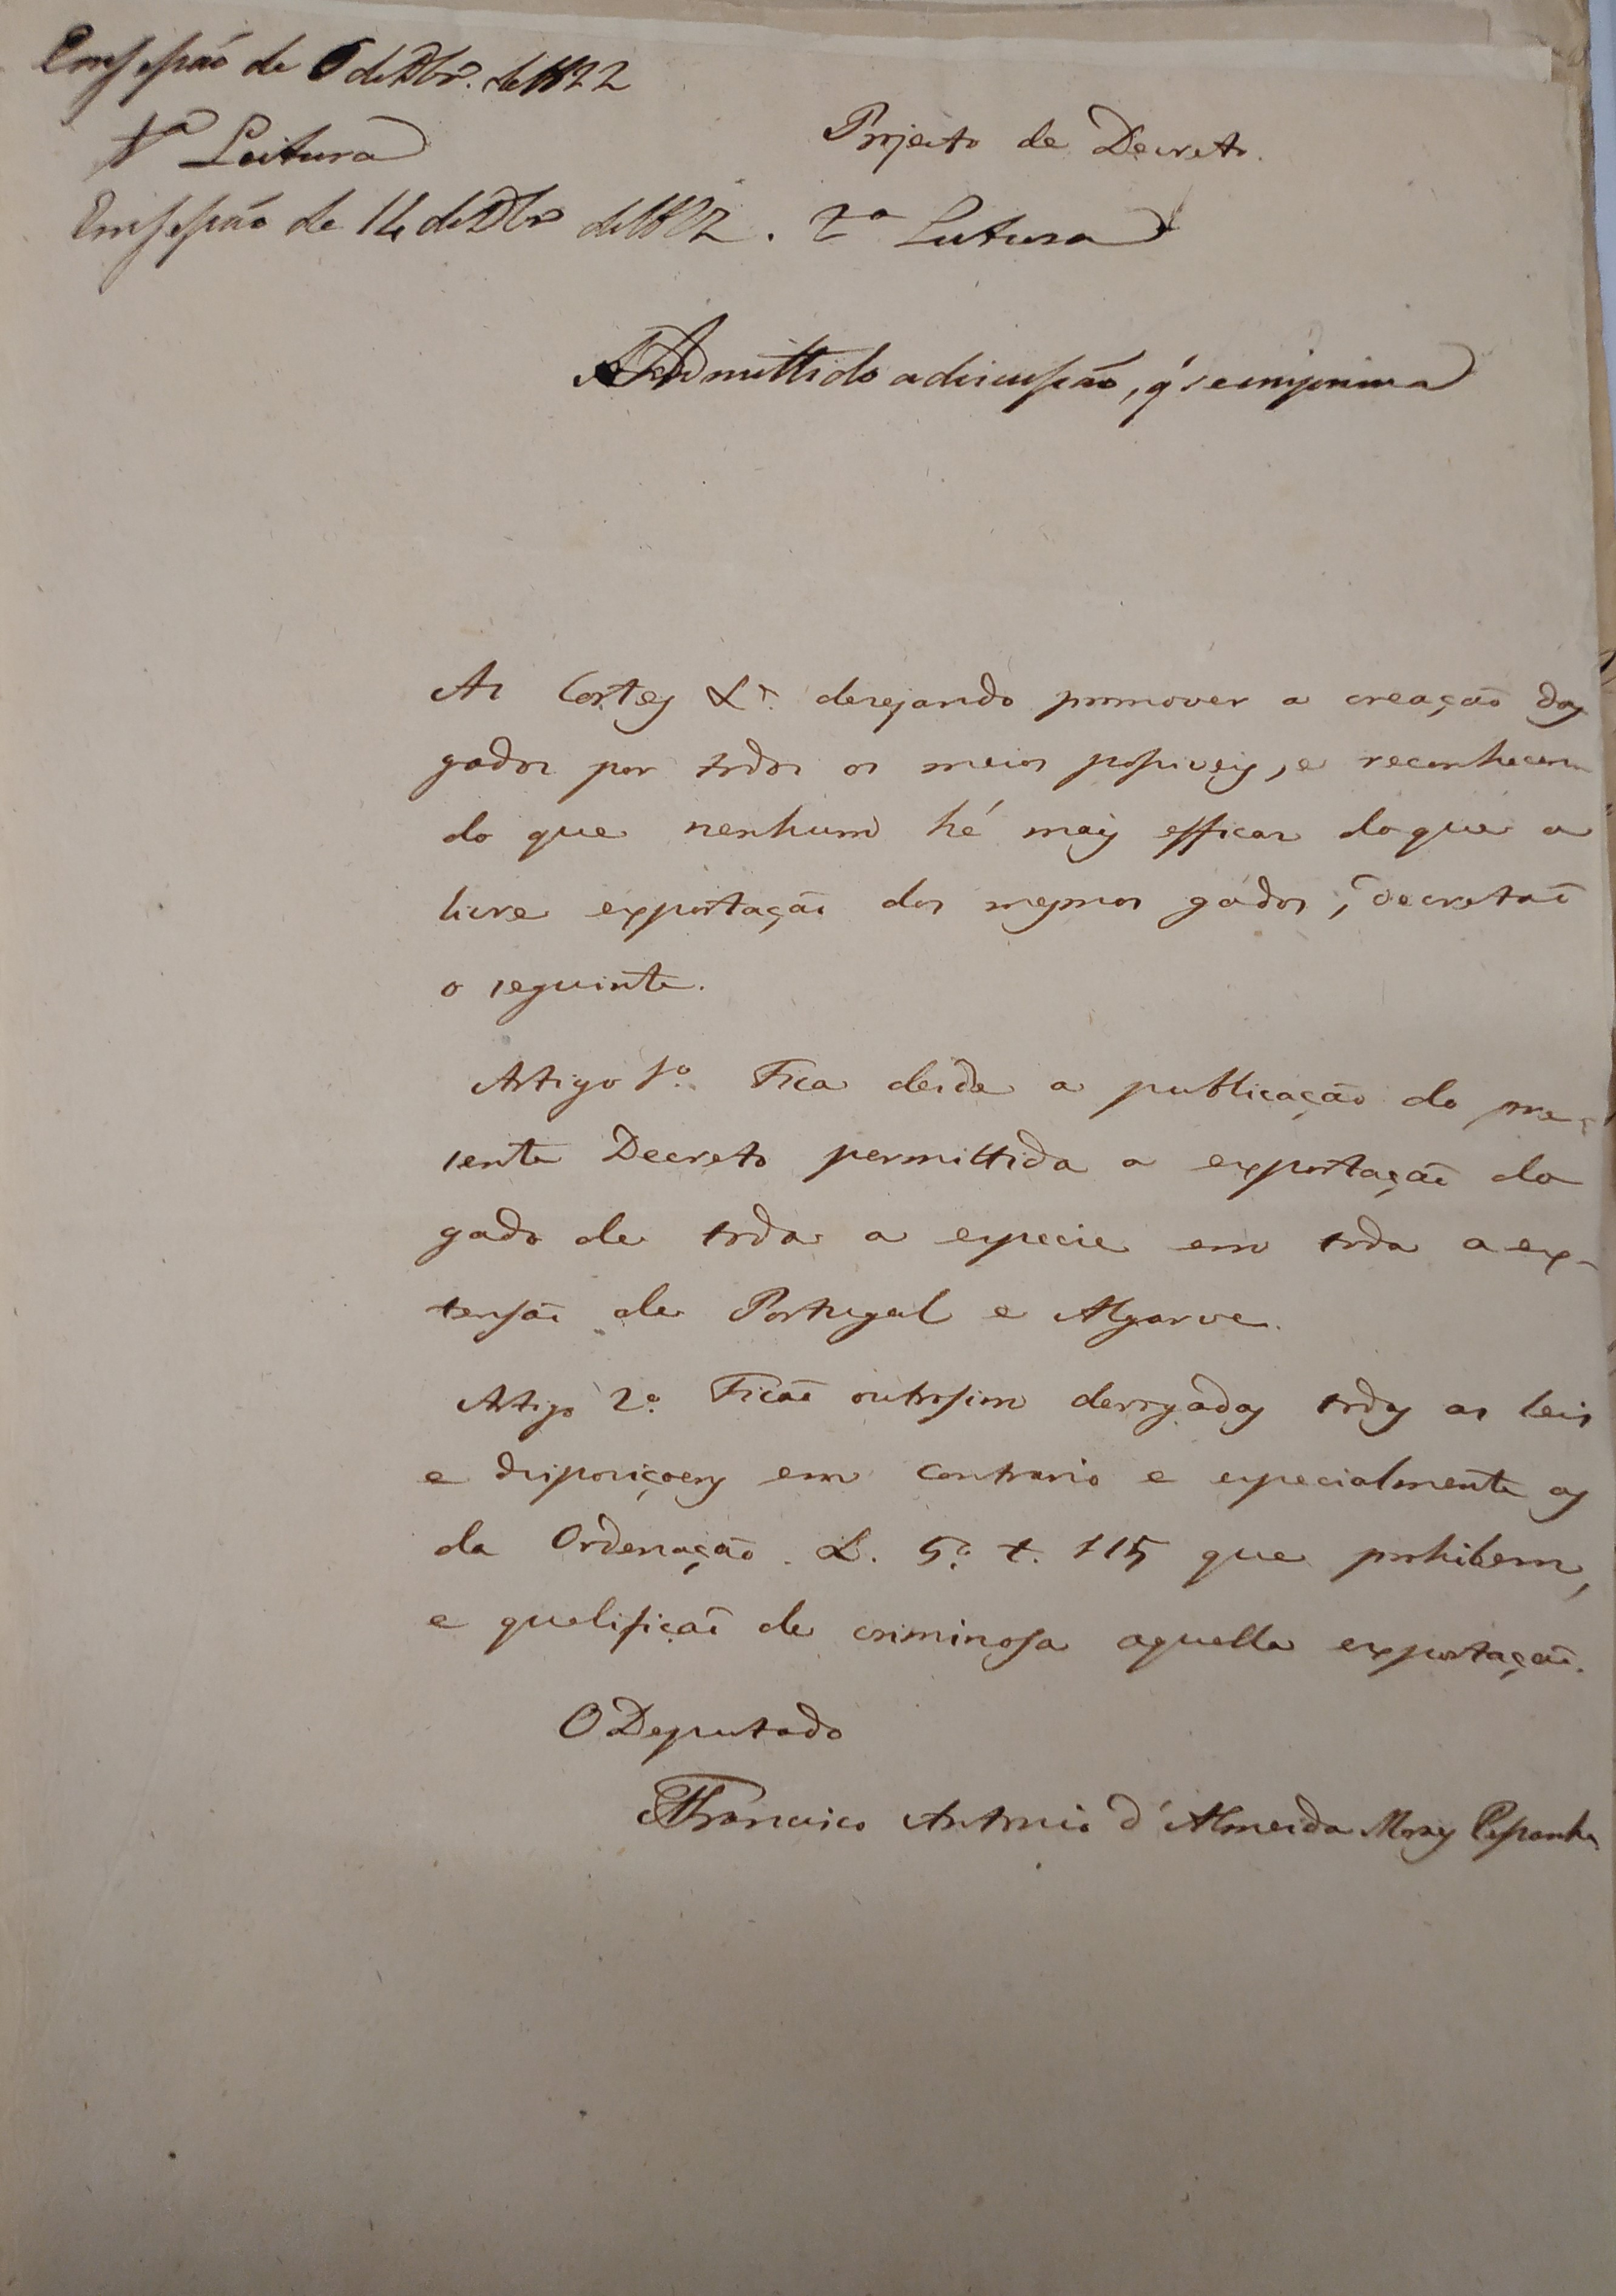 Em Sessão de 6 de Dbr.º de 1822
1ª Leitura
Projecto de Decreto.
Em Sessão de 14 de Dbrº de 1822. 2ª Leitura
Admittido a discussão, q' se imprima
As Cortes &ª. desejando promover a creação dos
gados por todos os meios possiveis, e reconhecen-
do que nenhum hé mais efficaz do que a
livre exportação dos mesmos gados, decretaõ
o seguinte.
Artigo 1º. Fica desde a publicação do pre-
sente Decreto permittida a exportaçaõ do
gado de toda a especie em toda a ex-
tensaõ de Portugal e Algarve.
Artigo 2º. Ficaõ outrosim derogadas todas as leis
e disposiçoens em contrario e especialmente as
da Ordenação L. 5º. t. 115 que prohibem,
e qualificaõ de criminosa aquella exportaçaõ.
O Deputado
Francisco Antonio d'Almeida Moraes Pessanha